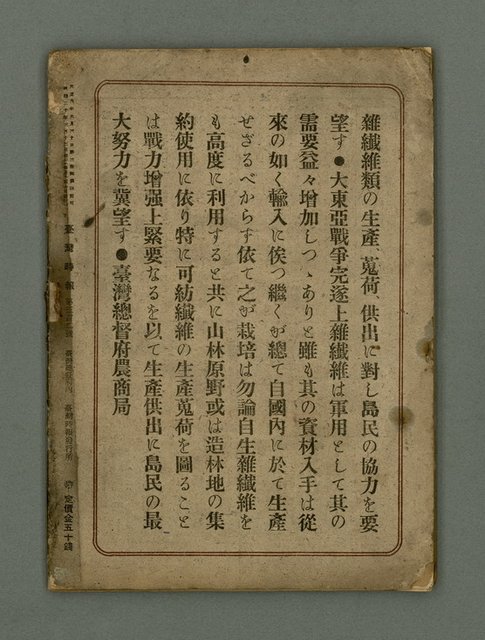 雜纖維類の生產、蒐荷、供出に對し島民の協力を要
望す●大東亞戰爭完遂上雜纖維は軍用として其の
需要益々增加しつゝありと雖も其の資材入手は從
來の如く輸入に俟つ繼くが總て自國內に於て生產
せざるべからす依て之が栽培は勿論自生雜纖維を
も高度に利用すると共に山林原野或は造林地の集
約使用に依り特に可紡纖維の生產蒐荷を圖ること
は戰力增强上緊要なるを以て生產供出に島民の最
大努力を冀望す●臺灣總督府農商局
臺灣時報
臺灣時報發行所
定價金五十錢